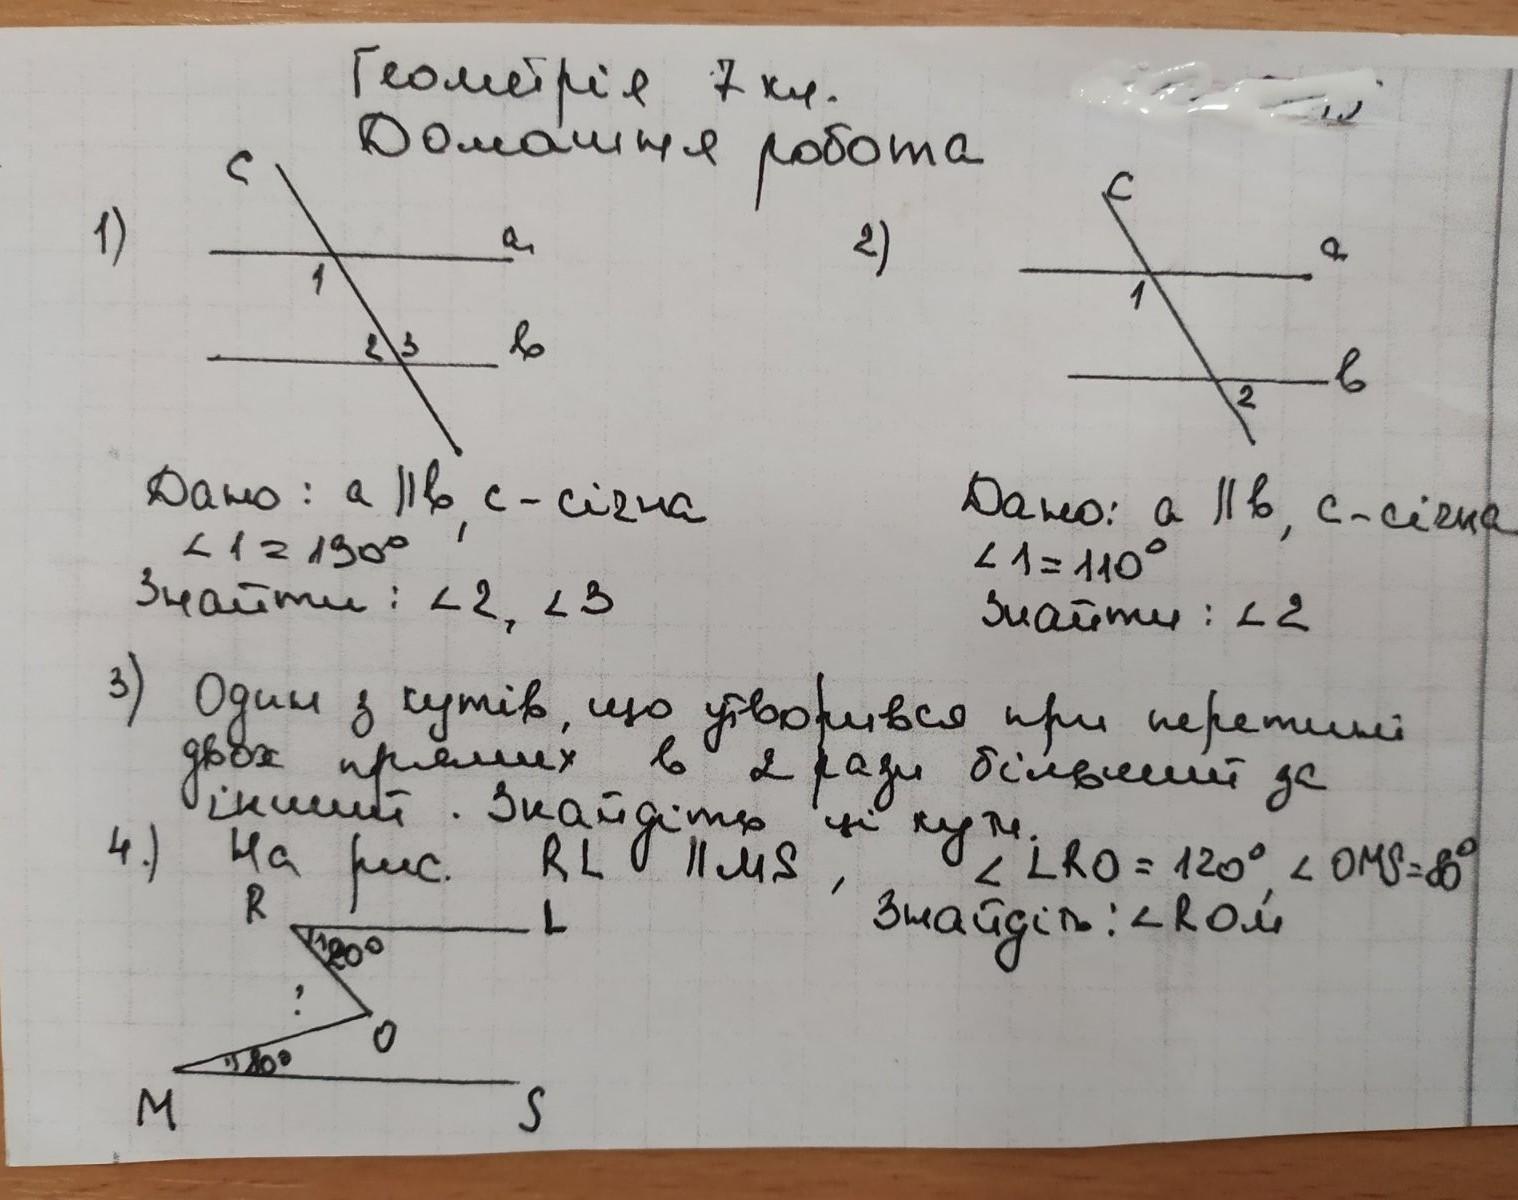 Геометрія 7 кл.
Домашня робота
1)
c
a
1
2 3
b
Дано: a || b, c - січна
∠1 = 130°
Знайти: ∠2, ∠3
2)
c
a
1
b
2
Дано: a || b, c - січна
∠1 = 110°
Знайти: ∠2
3) Один з кутів, що утворився при перетині
двох прямих в 2 рази більший за
інший. Знайдіть ці кути.
4.) На рис. RL || MS, ∠LRO = 120°, ∠OMS = 80°
Знайдіть: ∠ROM
R L
120°
?
O
80°
M S